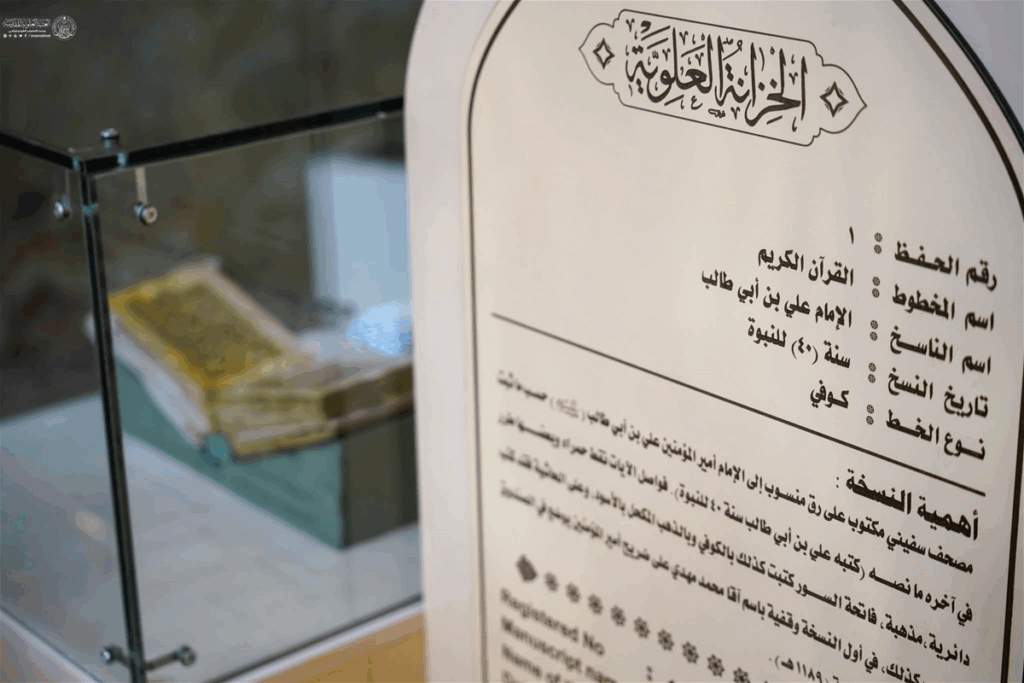 الخزانة العلوية
رقم الحفظ : ١
اسم المخطوط : القرآن الكريم
اسم الناسخ : الإمام علي بن أبي طالب
تاريخ النسخ : سنة (٤٠) للنبوة
نوع الخط : كوفي
أهمية النسخة :
مصحف سفيني مكتوب على رق منسوب إلى الإمام أمير المؤمنين علي بن أبي طالب حسب ما ثبت
في آخره ما نصه (كتبه علي بن أبي طالب سنة ٤٠ للنبوة). فواصل الآيات نقط حمراء وبعضها
دائرية، مذهبة، فاتحة السور كتبت كذلك بالكوفي وبالذهب المكحل بالأسود. وعلى الحاشية فقد كتب
كذلك، في أول النسخة وقفية باسم آقا محمد مهدي على ضريح أمير المؤمنين يوضع في الصندوق
(١١٨٩هـ).
Registered No
Manuscript name :
Name of